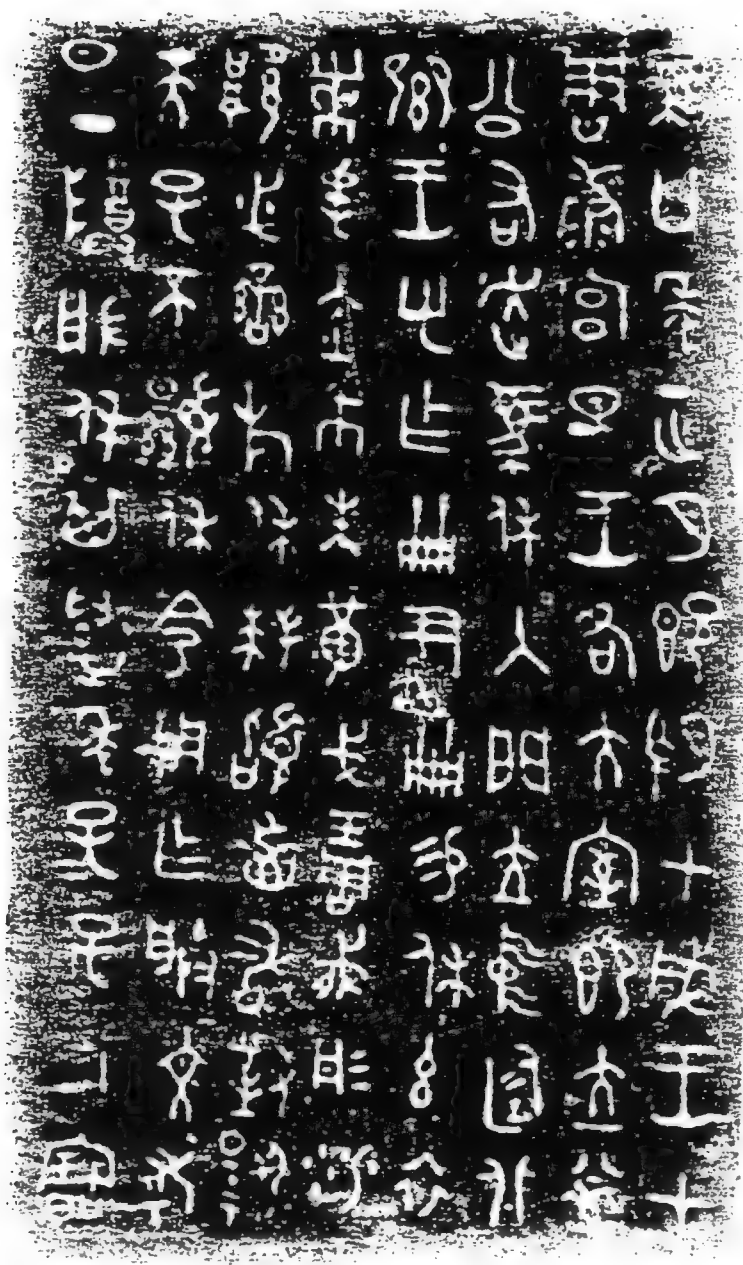 隹廿年正月既朢甲戌王才
周康宮旦王各大室即立益
公右走馬休入門立中廷北
鄉王乎乍冊尹冊易休玄衣
黹屯赤巿朱黃戈琱胾彤沙
厚必䜌㫃休拜稽首敢對揚
天子不顯休令用乍朕文考
日丁尊般休其萬年子子孫孫永寶